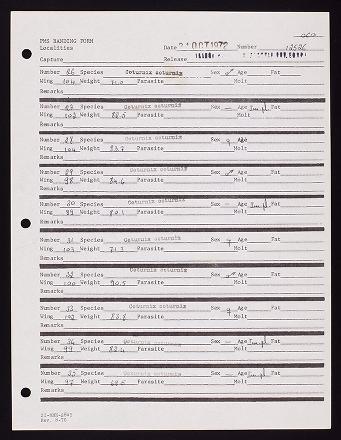 PMS BANDING FORM
Localities Date 21 OCT 1972 Number
Capture Release
Number 26 Species Coturnix coturnix Sex ♂ Age Fat
Wing 104 Weight Parasite Molt
Remarks
Number 27 Species Coturnix coturnix Sex — Age Fat
Wing 102 Weight 88.5 Parasite Molt
Remarks
Number 28 Species Coturnix coturnix Sex ♀ Age
Wing 104 Weight 83.7 Parasite Molt
Remarks
Number 29 Species Coturnix coturnix Sex ♂ Age Fat
Wing 98 Weight 84.6 Parasite Molt
Remarks
Number 30 Species Coturnix coturnix Sex — Age Fat
Wing 99 Weight 80.1 Parasite Molt
Remarks
Number 31 Species Coturnix coturnix Sex ♀ Age Fat
Wing 103 Weight 71.3 Parasite Molt
Remarks
Number 32 Species Coturnix coturnix Sex ♂ Age Fat
Wing 100 Weight 90.5 Parasite Molt
Remarks
Number 33 Species Coturnix coturnix Sex ♀ Age Fat
Wing 102 Weight 83.8 Parasite Molt
Remarks
Number 34 Species Coturnix coturnix Sex — Age Fat
Wing 99 Weight Parasite Molt
Remarks
Number 35 Species Coturnix coturnix Sex — Age Fat
Wing 97 Weight Parasite Molt
Remarks
Rev. 8-70